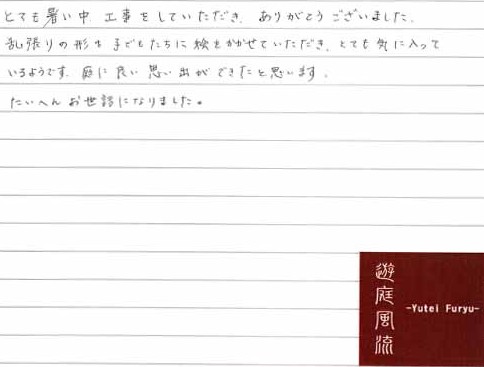 とても暑い中、工事をしていただき、ありがとうございました。
乱張りの形や子どもたちに絵をかかせていただき、とても気に入って
いるようです。庭に良い思い出ができたと思います。
たいへんお世話になりました。
遊庭風流
-Yutei Furyu-